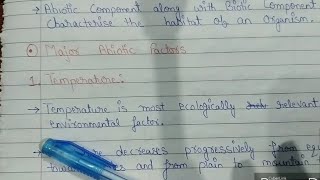 → Abiotic Component along with Biotic Component
Characterise the habitat of an Organism.
Major Abiotic Factors
1. Temperature:
→ Temperature is most ecologically relevant
environmental factor.
decreases progressively from
and from plain to mountain